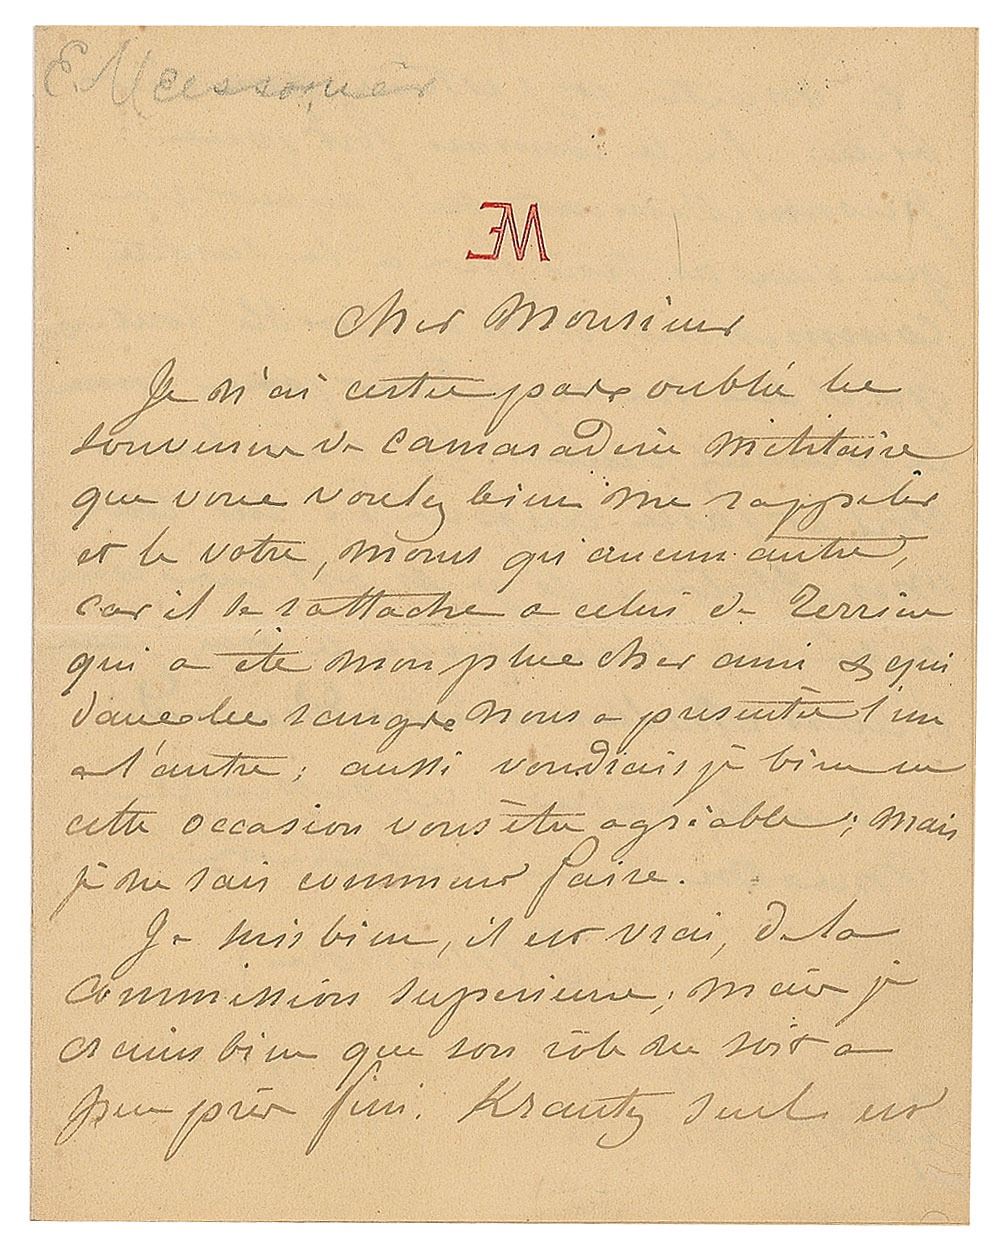 E. Meissonier
EM
Cher Monsieur
Je n'ai certe pas oublié les
souvenirs de camaraderie militaire
que vous voulez bien me rappeler
et le votre, moins qu'aucun autre,
car il se rattache a celui de
qui a été mon plus cher ami & qui
dans les rangs nous a presentés l'un
a l'autre; aussi voudrais je bien en
cette occasion vous être agréable; mais
je ne sais comment faire.
Je suis bien, il est vrai, de la
commission superieure; mais je
crains bien que son rôle ne soit a
peu près fini. Krantz seul est